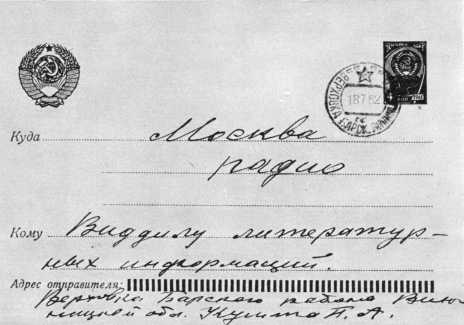 18762
Куда Москва
радио
Кому Виддилу литератур-
ных информаций.
Адрес отправителя:
Верховка Барского района Вин-
ницкой обл. П. А.